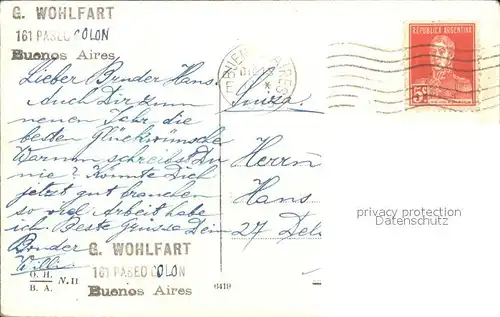 G. WOHLFART
161 PASEO COLON
Buenos Aires
Lieber Bruder Hans.
Auch Dir zum
neuen Jahr die
besten Glückwünsche
Warum schreibst Du
nie? Könnte Dich
jetzt gut brauchen
so viel Arbeit habe
ich. Beste Grüsse Dein
Bruder
Willi
G. WOHLFART
161 PASEO COLON
Buenos Aires
O. H.
B. A.
N. 11
6419
BUENOS AIRES
REPUBLICA ARGENTINA
5c
Suiza.
Herrn
Hans
27
privacy protection
Datenschutz